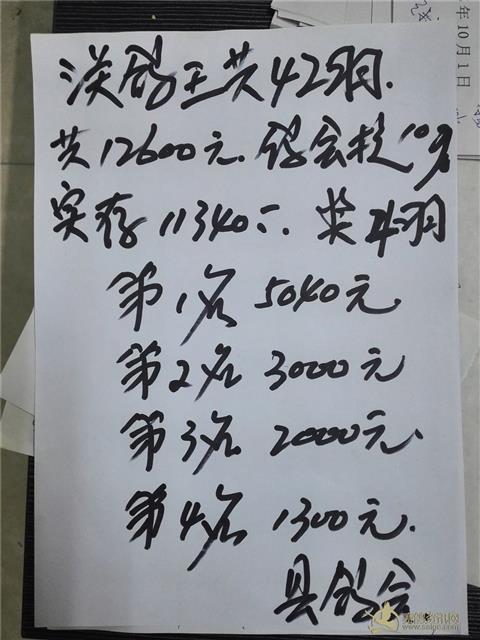 年10月1日
淡鸽王共42羽.
共12600元.鸽会提10%
实存11340元.奖4羽
第1名 5040元
第2名 3000元
第3名 2000元.
第4名 1300元.
县鸽会
www.saige.com